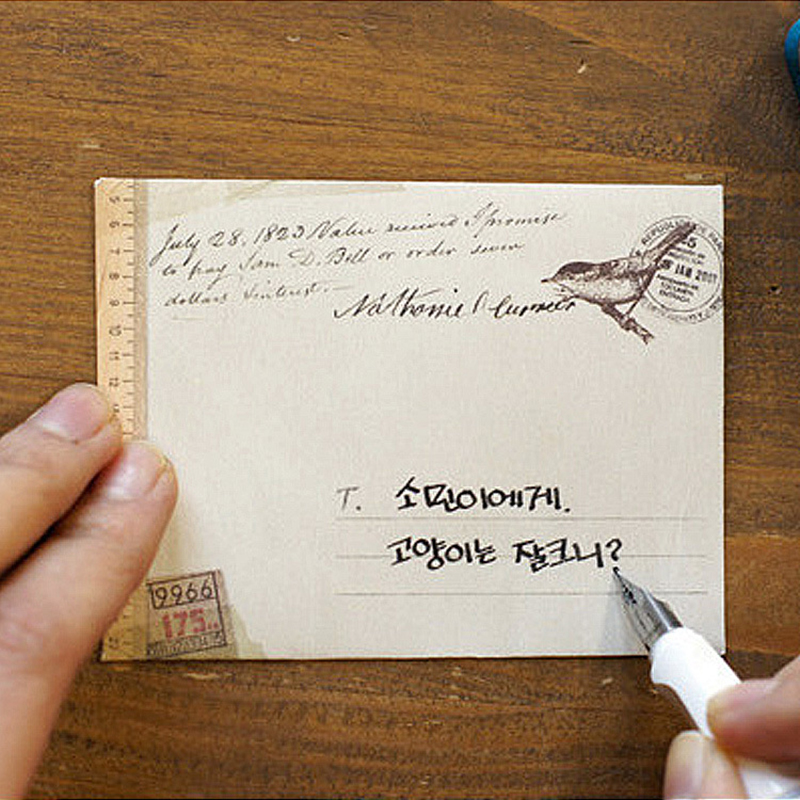 July 28, 1823 Value received I promise
to pay Sam D. Bell or order seven
dollars & interest.
Nathaniel Currier
5 JAN 2007
T. 소민이에게.
고양이는 잘크니?
9966
175
5
6
7
8
9
10
11
12